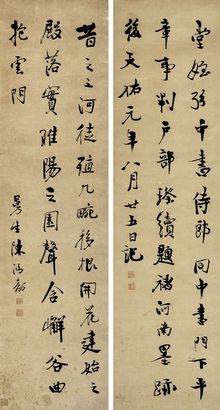 堂姪中書侍郎同中書門下平
章事判戶部續題褚河南墨跡
後天祐元年八月廿五日記
昔之三河徙殖九畹移根開花建始之
殿落實睢陽之園聲含嶰谷曲
抱雲門
曼生陳鴻壽